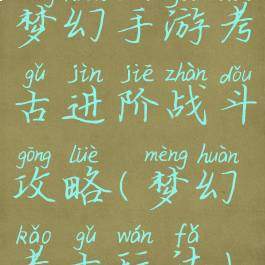 梦幻手游考
gǔ jìn jiē zhàn dǒu
古进阶战斗
gōng lüè mèng huàn
攻略(梦幻
kǎo gǔ wán fǎ
考古玩法)